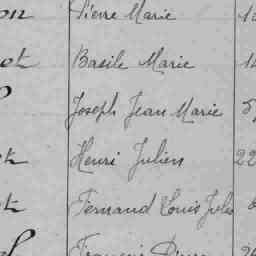 on Pierre Marie
Basile Marie
Joseph Jean Marie
Henri Julien 22
Fernand Louis Jules
François Pierre